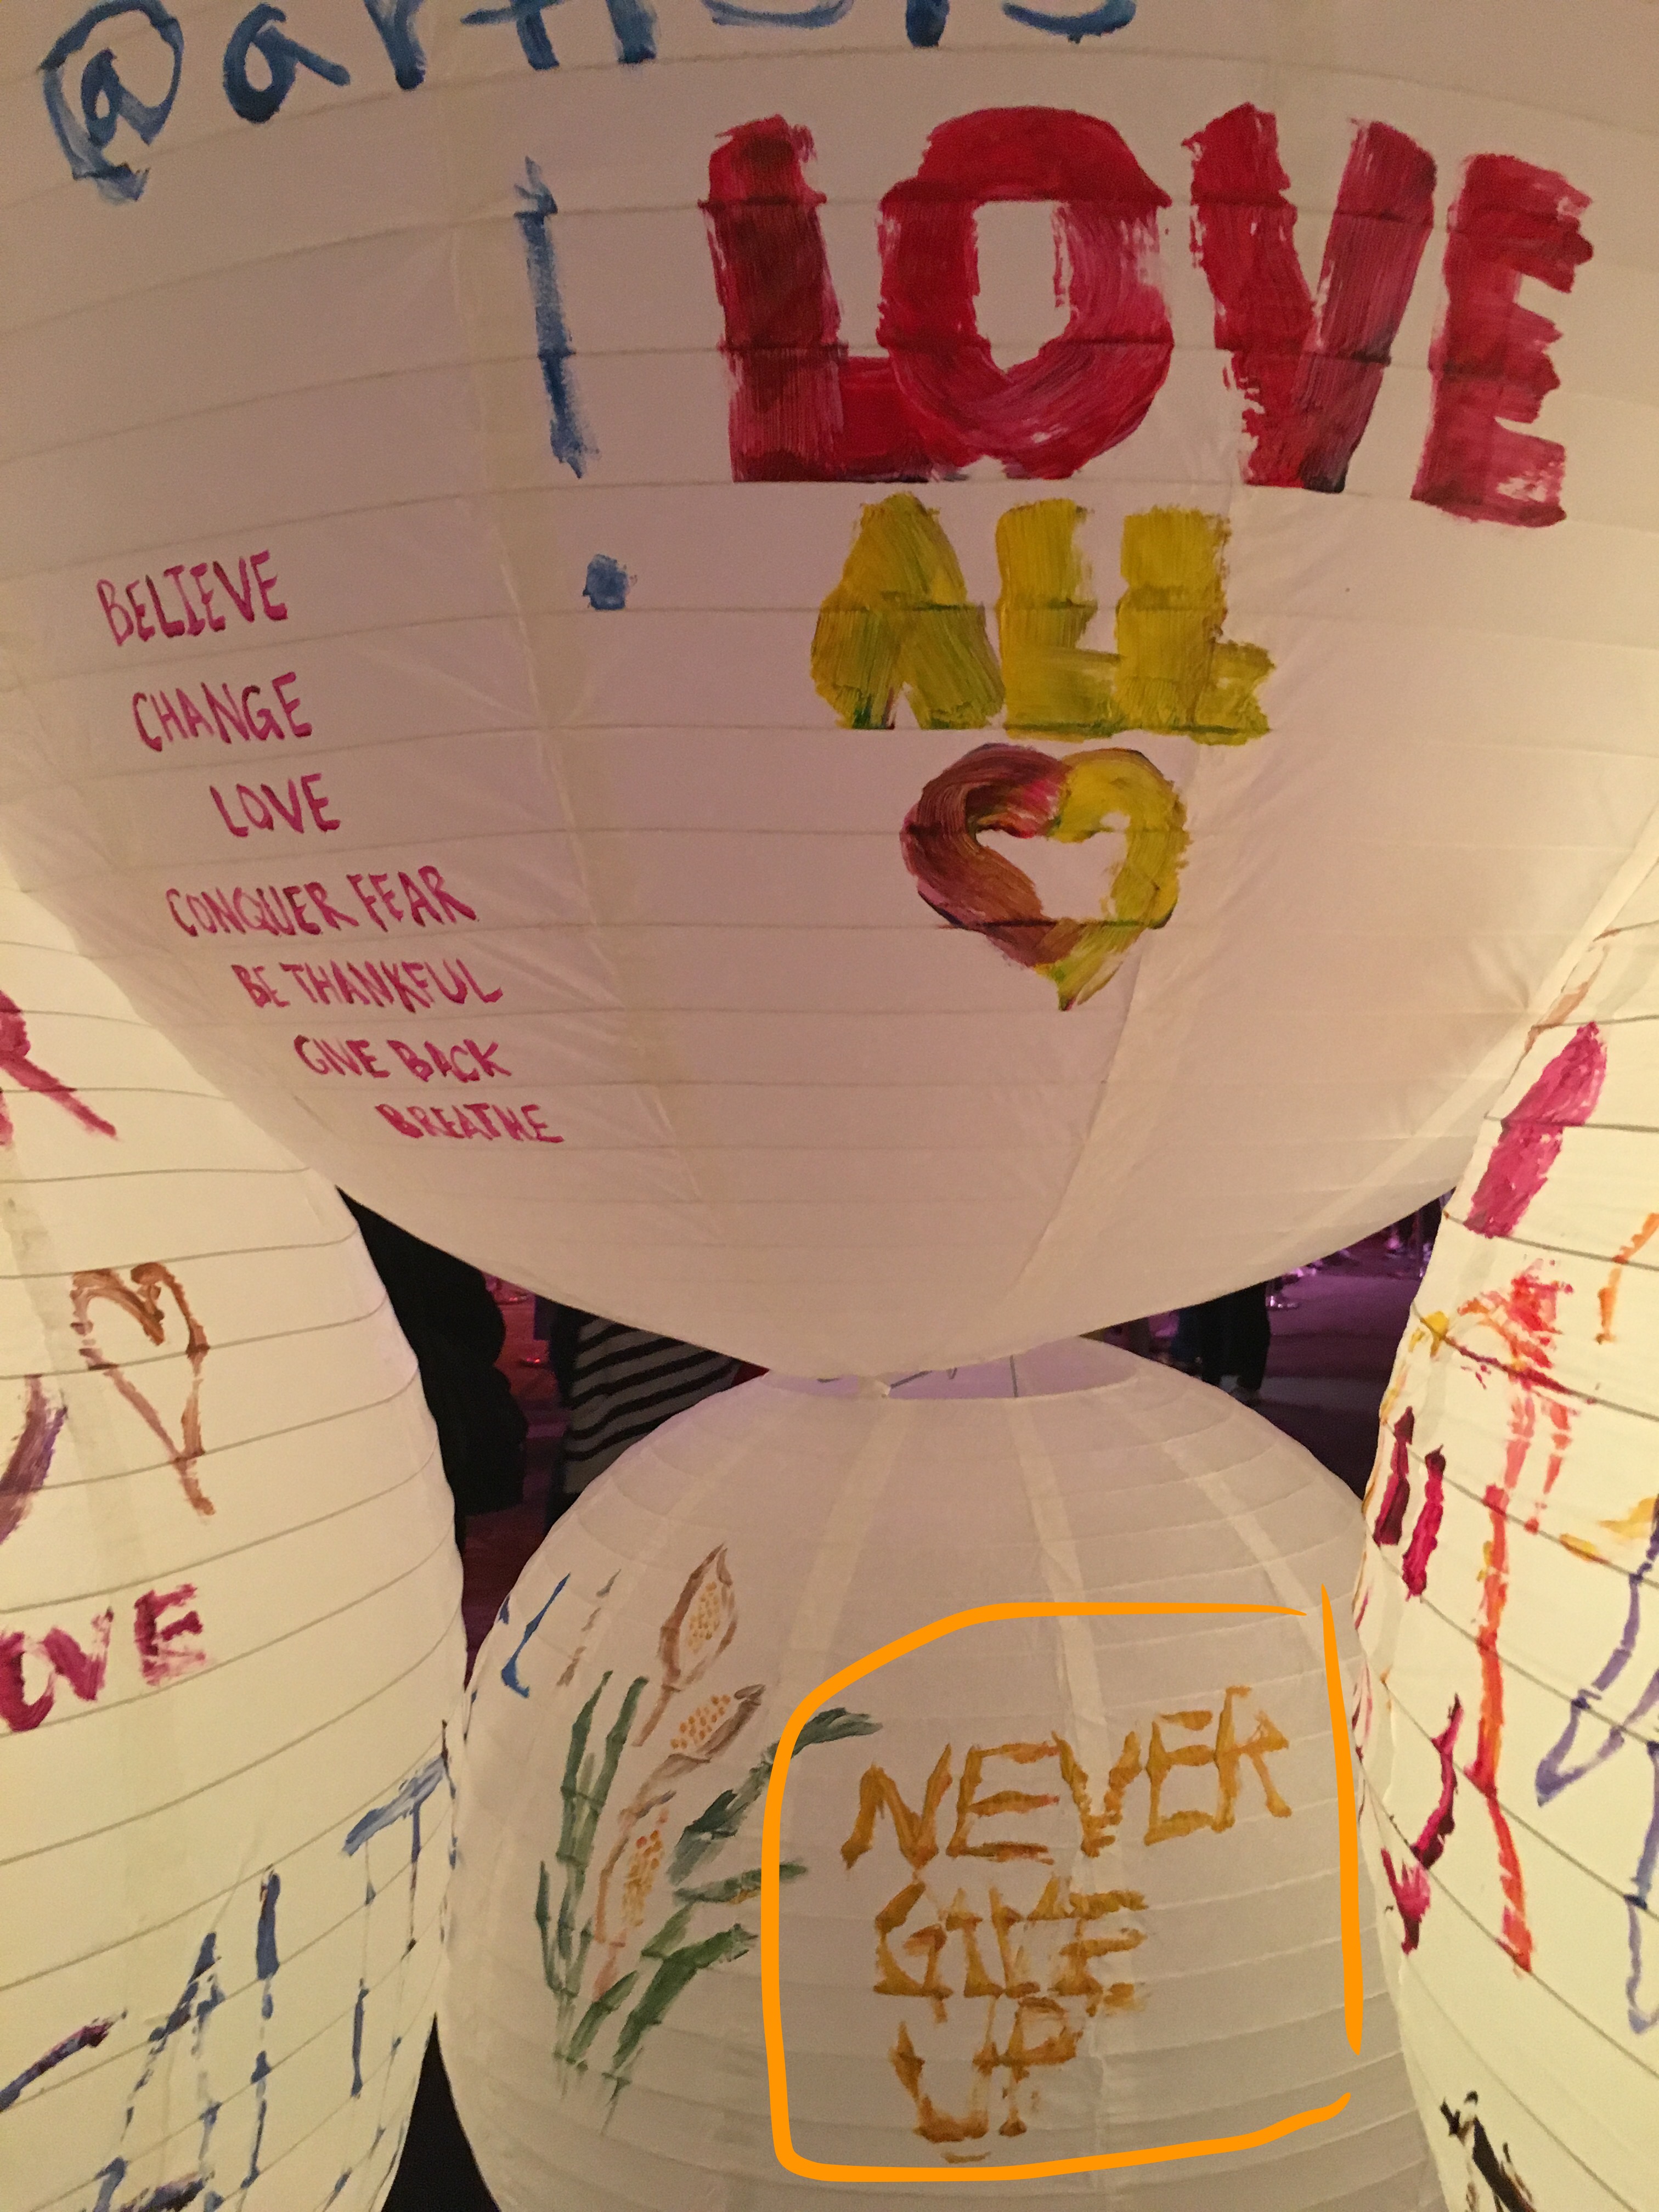 @artists
!
LOVE
ALL
BELIEVE
CHANGE
LOVE
CONQUER FEAR
BE THANKFUL
GIVE BACK
BREATHE
NEVER
GIVE
UP